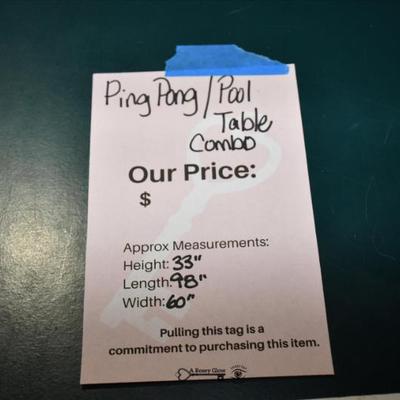 Ping Pong / Pool
Table
Combo
Our Price:
$
Approx Measurements:
Height: 33"
Length: 98"
Width: 60"
Pulling this tag is a
commitment to purchasing this item.
A Rosey Glow